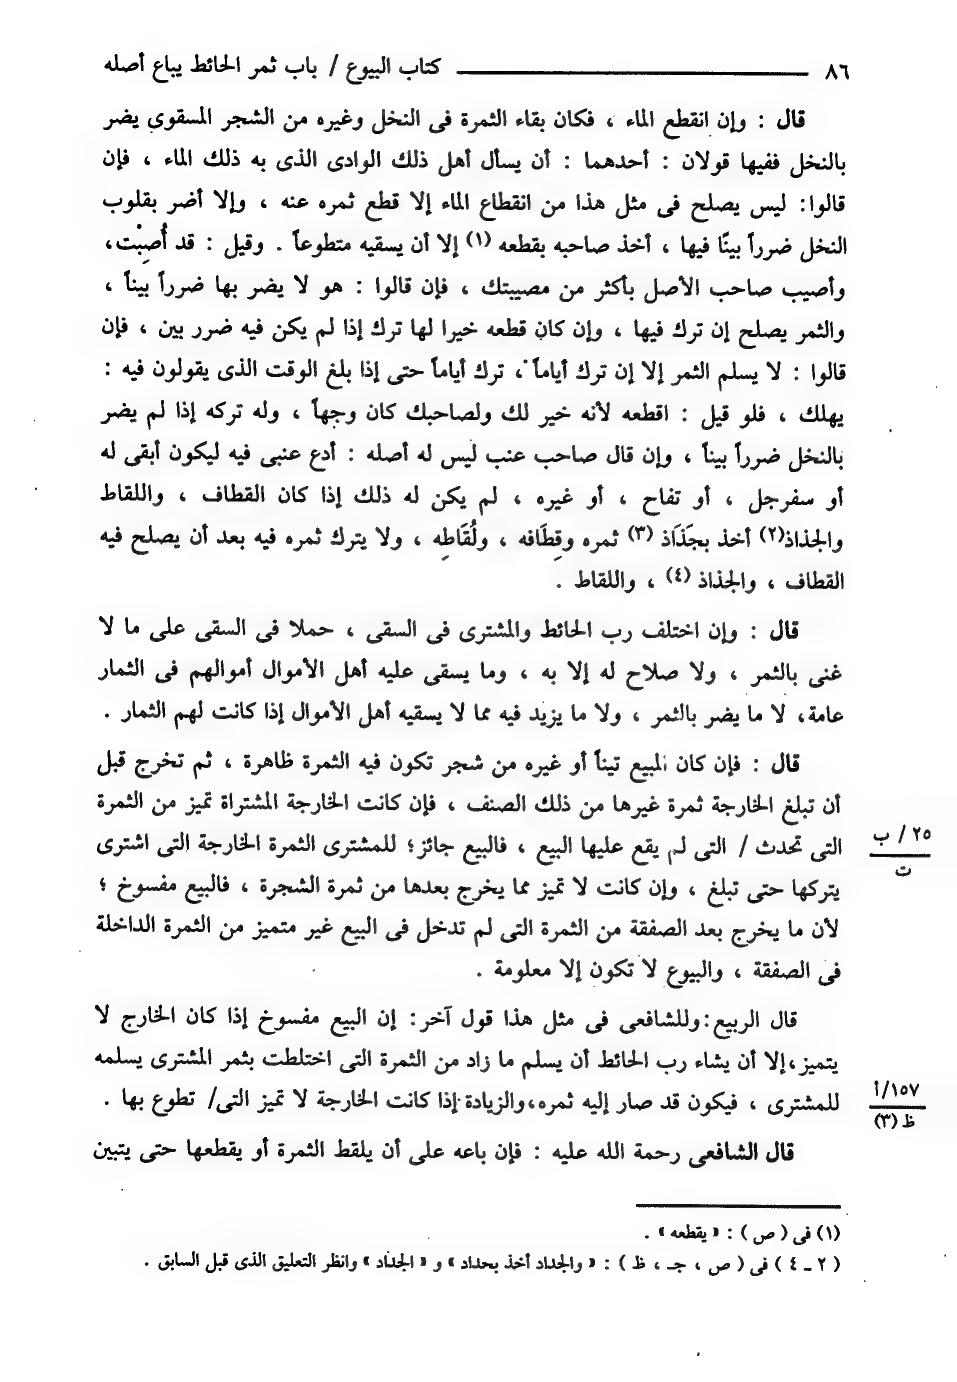 ٨٦ كتاب البيوع / باب ثمر الحائط يباع أصله
قال : وإن انقطع الماء ، فكان بقاء الثمرة فى النخل وغيره من الشجر المسقوى يضر
بالنخل ففيها قولان : أحدهما : أن يسأل أهل ذلك الوادى الذى به ذلك الماء ، فإن
قالوا: ليس يصلح فى مثل هذا من انقطاع الماء إلا قطع ثمره عنه ، وإلا أضر بقلوب
النخل ضرراً بينًا فيها ، أخذ صاحبه بقطعه (١) إلا أن يسقيه متطوعاً . وقيل : قد أُصِبْت،
وأصيب صاحب الأصل بأكثر من مصيبتك ، فإن قالوا : هو لا يضر بها ضرراً بيناً ،
والثمر يصلح إن ترك فيها ، وإن كان قطعه خيرا لها ترك إذا لم يكن فيه ضرر بين ، فإن
قالوا : لا يسلم الثمر إلا إن ترك أياماً ، ترك أياماً حتى إذا بلغ الوقت الذى يقولون فيه :
يهلك ، فلو قيل : اقطعه لأنه خير لك ولصاحبك كان وجهاً ، وله تركه إذا لم يضر
بالنخل ضرراً بيناً ، وإن قال صاحب عنب ليس له أصله : أدع عنبى فيه ليكون أبقى له
أو سفرجل ، أو تفاح ، أو غيره ، لم يكن له ذلك إذا كان القطاف ، واللقاط
والجذاذ(٢) أخذ بجَذَاذ (٣) ثمره وقِطَافه ، ولُقَاطِه ، ولا يترك ثمره فيه بعد أن يصلح فيه
القطاف ، والجذاذ (٤) ، واللقاط .
قال : وإن اختلف رب الحائط والمشترى فى السقى ، حملا فى السقى على ما لا
غنى بالثمر ، ولا صلاح له إلا به ، وما يسقى عليه أهل الأموال أموالهم فى الثمار
عامة، لا ما يضر بالثمر ، ولا ما يزيد فيه مما لا يسقيه أهل الأموال إذا كانت لهم الثمار .
قال : فإن كان المبيع تيناً أو غيره من شجر تكون فيه الثمرة ظاهرة ، ثم تخرج قبل
أن تبلغ الخارجة ثمرة غيرها من ذلك الصنف ، فإن كانت الخارجة المشتراة تميز من الثمرة
التى تحدث / التى لم يقع عليها البيع ، فالبيع جائز؛ للمشترى الثمرة الخارجة التى اشترى
٢٥ / ب
ت
يتركها حتى تبلغ ، وإن كانت لا تميز مما يخرج بعدها من ثمرة الشجرة ، فالبيع مفسوخ ؛
لأن ما يخرج بعد الصفقة من الثمرة التى لم تدخل فى البيع غير متميز من الثمرة الداخلة
فى الصفقة ، والبيوع لا تكون إلا معلومة .
قال الربيع: وللشافعى فى مثل هذا قول آخر: إن البيع مفسوخ إذا كان الخارج لا
يتميز،إلا أن يشاء رب الحائط أن يسلم ما زاد من الثمرة التى اختلطت بثمر المشترى يسلمه
للمشترى ، فيكون قد صار إليه ثمره،والزيادة إذا كانت الخارجة لا تميز التى/ تطوع بها .
١٥٧/أ
ظ (٣)
قال الشافعى رحمة الله عليه : فإن باعه على أن يلقط الثمرة أو يقطعها حتى يتبين
(١) فى ( ص ) : « يقطعه » .
( ٢ ـ ٤ ) فى ( ص ، جـ ، ظ ) : « والجداد أخذ بحداد » و « الجداد » وانظر التعليق الذى قبل السابق .